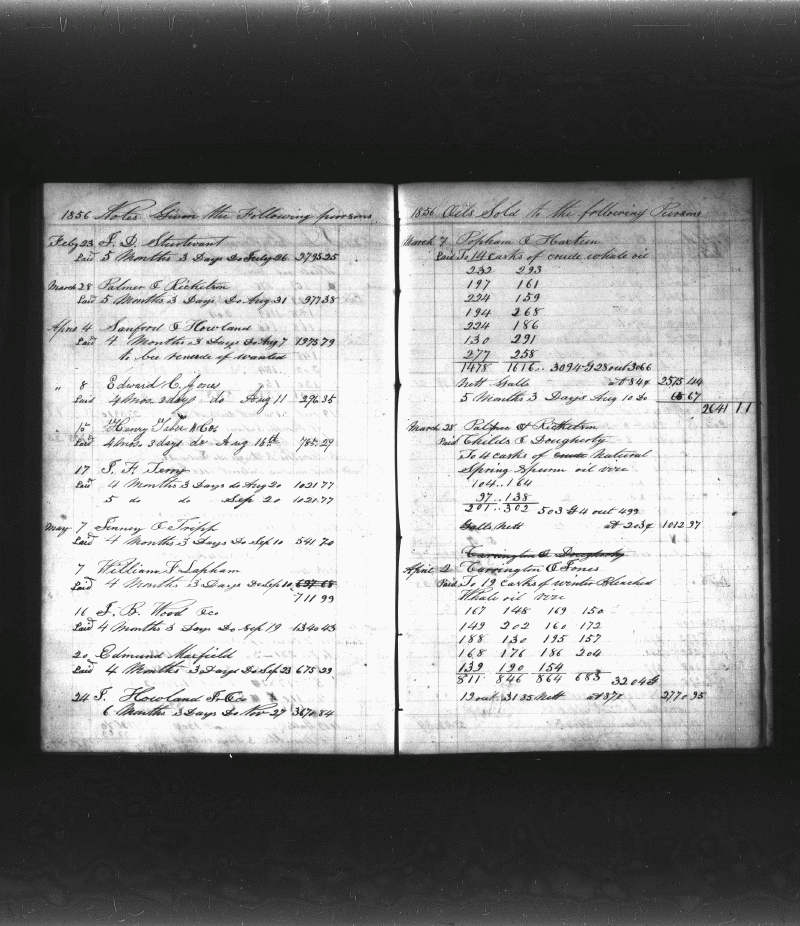 1856 Notes Given the Following persons
Feby 23 J. D. Sturtevant
Paid 5 Months 3 Days Do July 26 2795 25
March 28 Palmer & Ricketson
Paid 5 Months 3 Days Do Aug 31 977 38
April 4 Sanford & Howland
Paid 4 Months 3 Days Do Aug 7 1975 79
to bee renewed if wanted
" 8 Edward C. Jones
Paid 4 mos. 3 days do Aug 11 296 35
" 15 Henry Taber & Co.
Paid 4 mos 3 days do Aug 18th 785.29
17 I. F. Terry
Paid 4 Months 3 Days do Aug 20 1021 77
5 do do Sep 20 1021.77
May 7 Tenney & Tripp
Paid 4 Months 3 Days Do Sep 10 541 70
7 William F Lapham
Paid 4 Months 3 Days Do Sep 10 697 68
711 99
16 J. B. Wood & Co
Paid 4 Months 3 Days Do Sep 19 1340 43
20 Edmund Maxfield
Paid 4 Months 3 Days Do Sep 23 675 29
24 Howland Jr & Co
6 Months 3 Days Do Nov 27 3670 84
1856 Oils Sold to the following Persons
March 7 Popham &
Paid To 14 casks of crude whale oil
232 293
197 161
224 159
194 268
224 186
130 291
277 258
1478 1616 .. 3094 G 28 out 3066
Nett Galls at 84¢ 2575 44
5 Months 3 Days Aug 10 Do 65 67
2641 11
March 28 Palmer & Ricketson
Paid Childs & Dougherty
To 4 casks of crude Natural
Spring Spurm oil vize
104 .. 164
97 .. 138
201 .. 302 503 G 4 out 499
Galls Nett at 203¢ 1012 97
Carrington & Dougherty
April 2 Carrington & Jones
Paid To 19 Casks of winter Bleached
Whale oil vize
167 148 169 150
149 202 160 172
188 130 195 157
168 176 186 204
139 190 154
811 846 864 683 3204 G
19 out 3185 Nett at 87¢ 2770 95